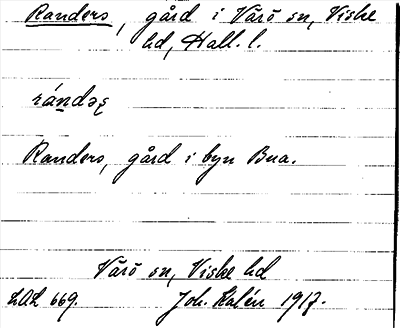 Randers, gård i Värö sn, Viske
hd, Hall. l.
Randers, gård i byn Bua.
Värö sn, Viske hd
LAL 669. Joh. Kalén 1917.